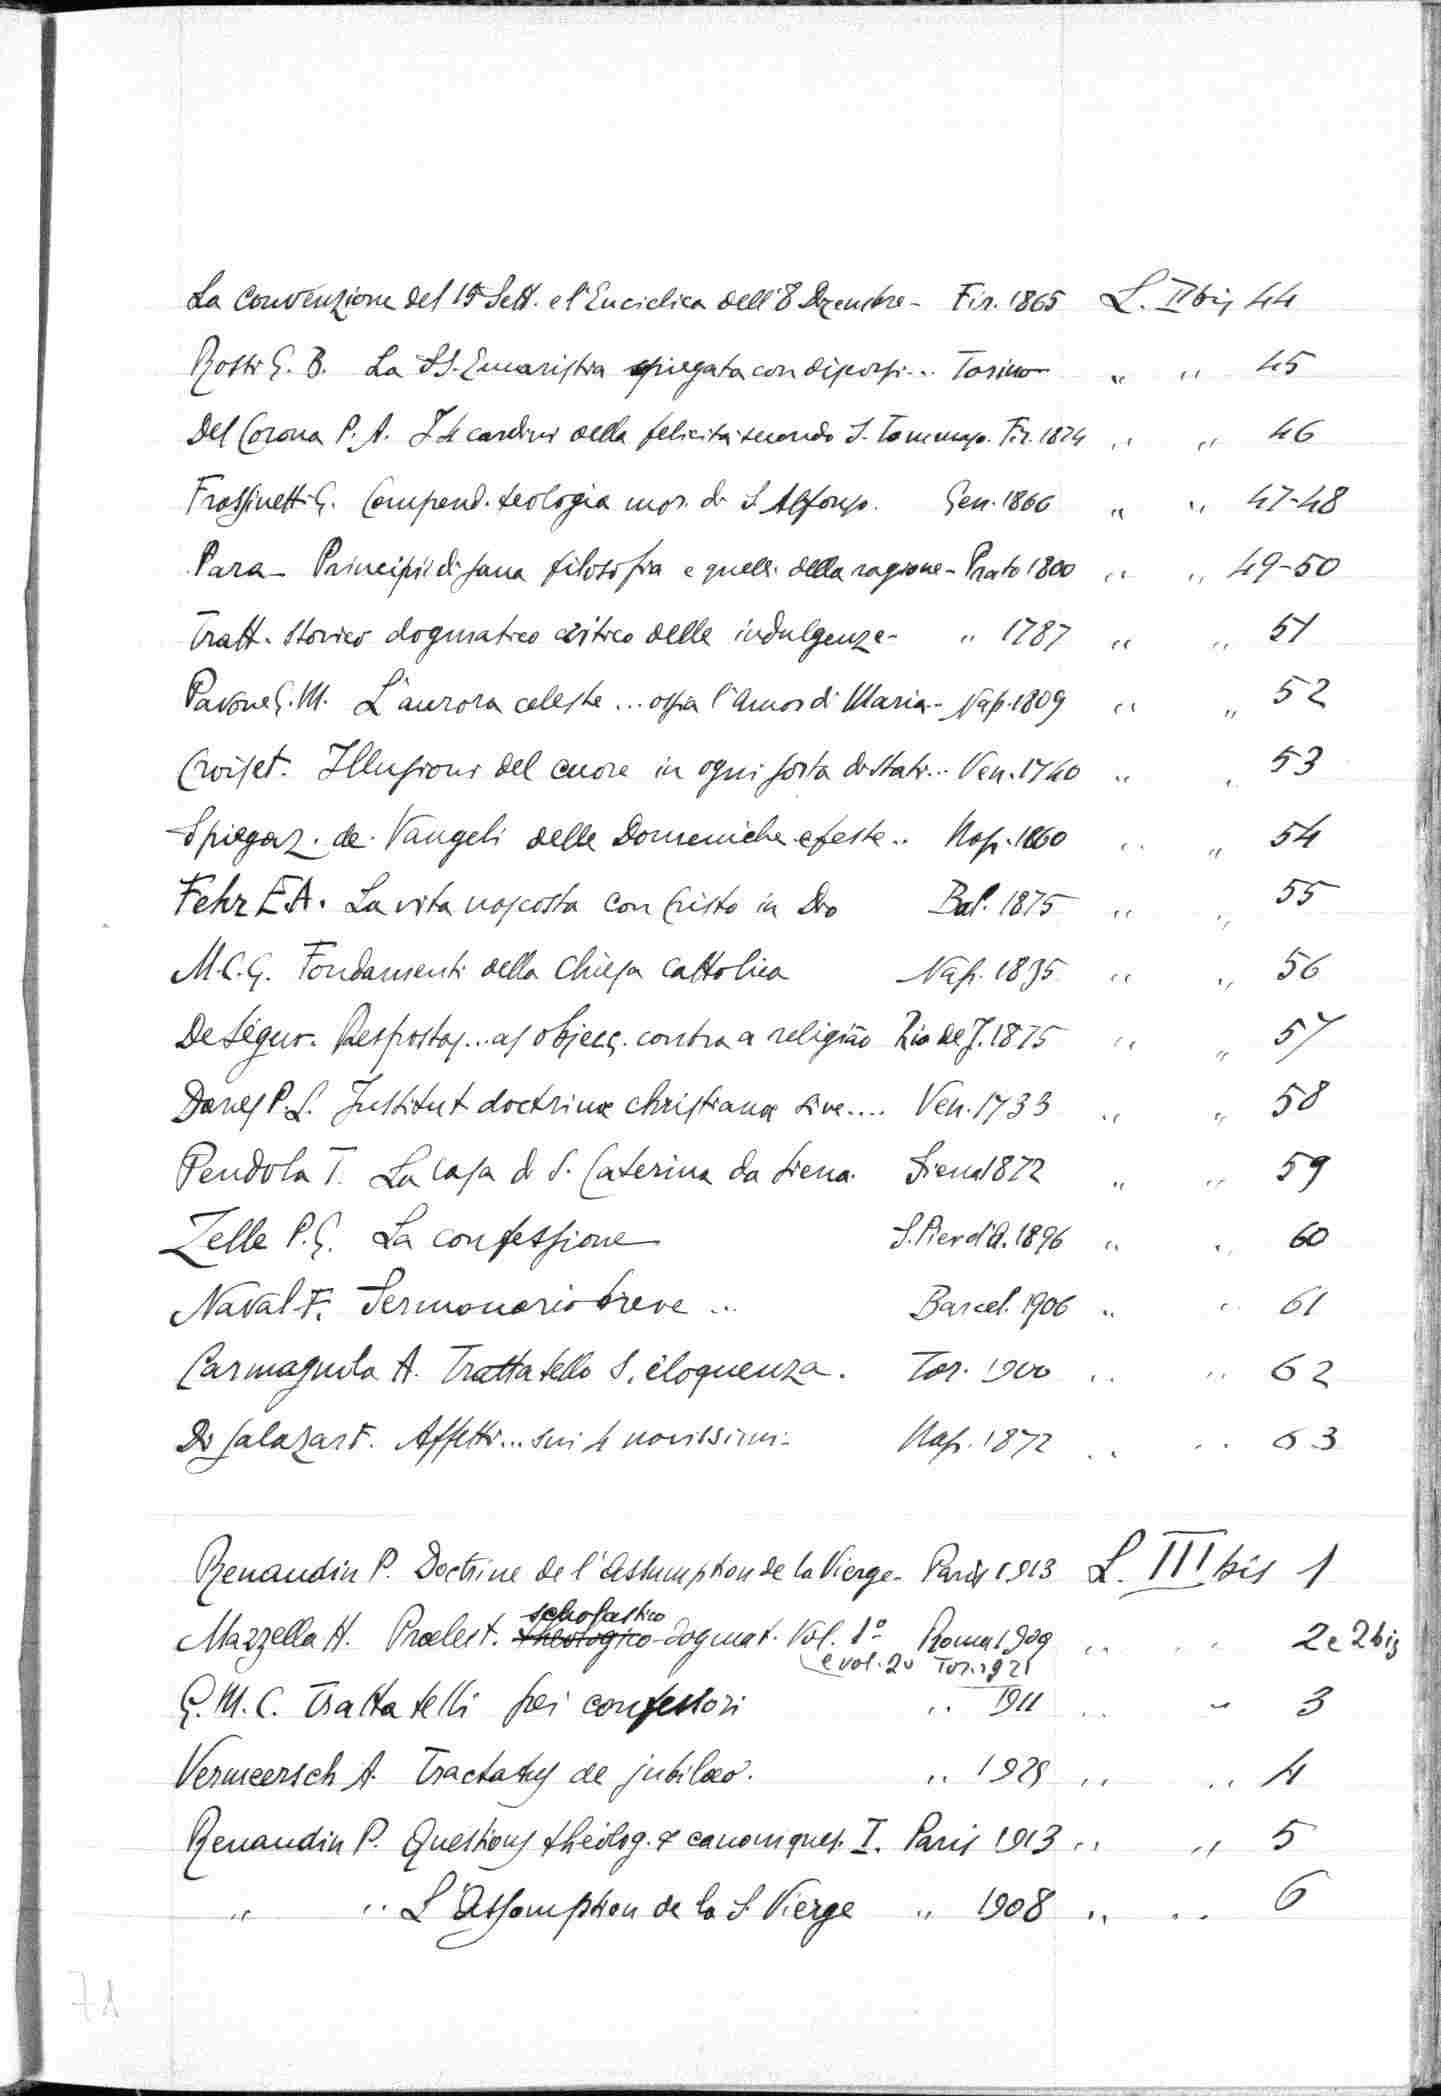 La Convenzione del 15 Sett. e l'Enciclica dell'8 Dizembre - Fir. 1865 L. II bis 44
Rossi G. B. La SS. Eucaristia spiegata con discorsi... Torino " " 45
Del Corona P. A. I 4 cardini della felicità secondo S. Tommaso. Fir. 1874 " " 46
Frassinetti G. Compend. teologia mor. di S. Alfonso. Gen. 1866 " " 47-48
Para - Principii di sana filosofia e quelli della ragione - Prato 1800 " " 49-50
Tratt. storico dogmatico critico delle indulgenze - " 1787 " " 51
Pavone G. M. L'aurora celeste ... ossia l'amor di Maria - Nap. 1809 " " 52
Croiset. Illusioni del cuore in ogni sorta di stati... Ven. 1740 " " 53
Spiegaz. de' Vangeli delle Domeniche e feste .. Nap. 1860 " " 54
Fehr E.A. La vita nascosta con Cristo in Dio Bol. 1875 " " 55
M.C.G. Fondamenti della Chiesa cattolica Nap. 1835 " " 56
De Ségur. Respostas... as objecç. contra a religião Rio de J. 1875 " " 57
Danes P. L. Institut doctrinæ christianæ sive.... Ven. 1733 " " 58
Pendola T. La casa di S. Caterina da Siena. Siena 1872 " " 59
Zelle P. G. La confessione S. Pier d'A. 1896 " " 60
Naval F. Sermonario breve ... Barcel. 1906 " " 61
Carmagnola A. Trattatello S. eloquenza. Tor. 1900 " " 62
Di Salazar F. Affetti... sui 4 novissimi - Nap. 1872 " " 63
Renaudin P. Doctrine de l'assumption de la Vierge - Paris 1913 L. III bis 1
scholastico
Mazzella H. Prælect. theologico-dogmat. Vol. 1º Roma 1909 " " 2 e 2 bis
e vol. 2º Tor. 1921
G. M. C. Trattatelli pei confessori " 1911 " " 3
Vermeersch A. Tractatus de jubilæo. " 1925 " " 4
Renaudin P. Questions théolog. & canoniques. I. Paris 1913 " " 5
" " L'Assomption de la S. Vierge " 1908 " " 6
71